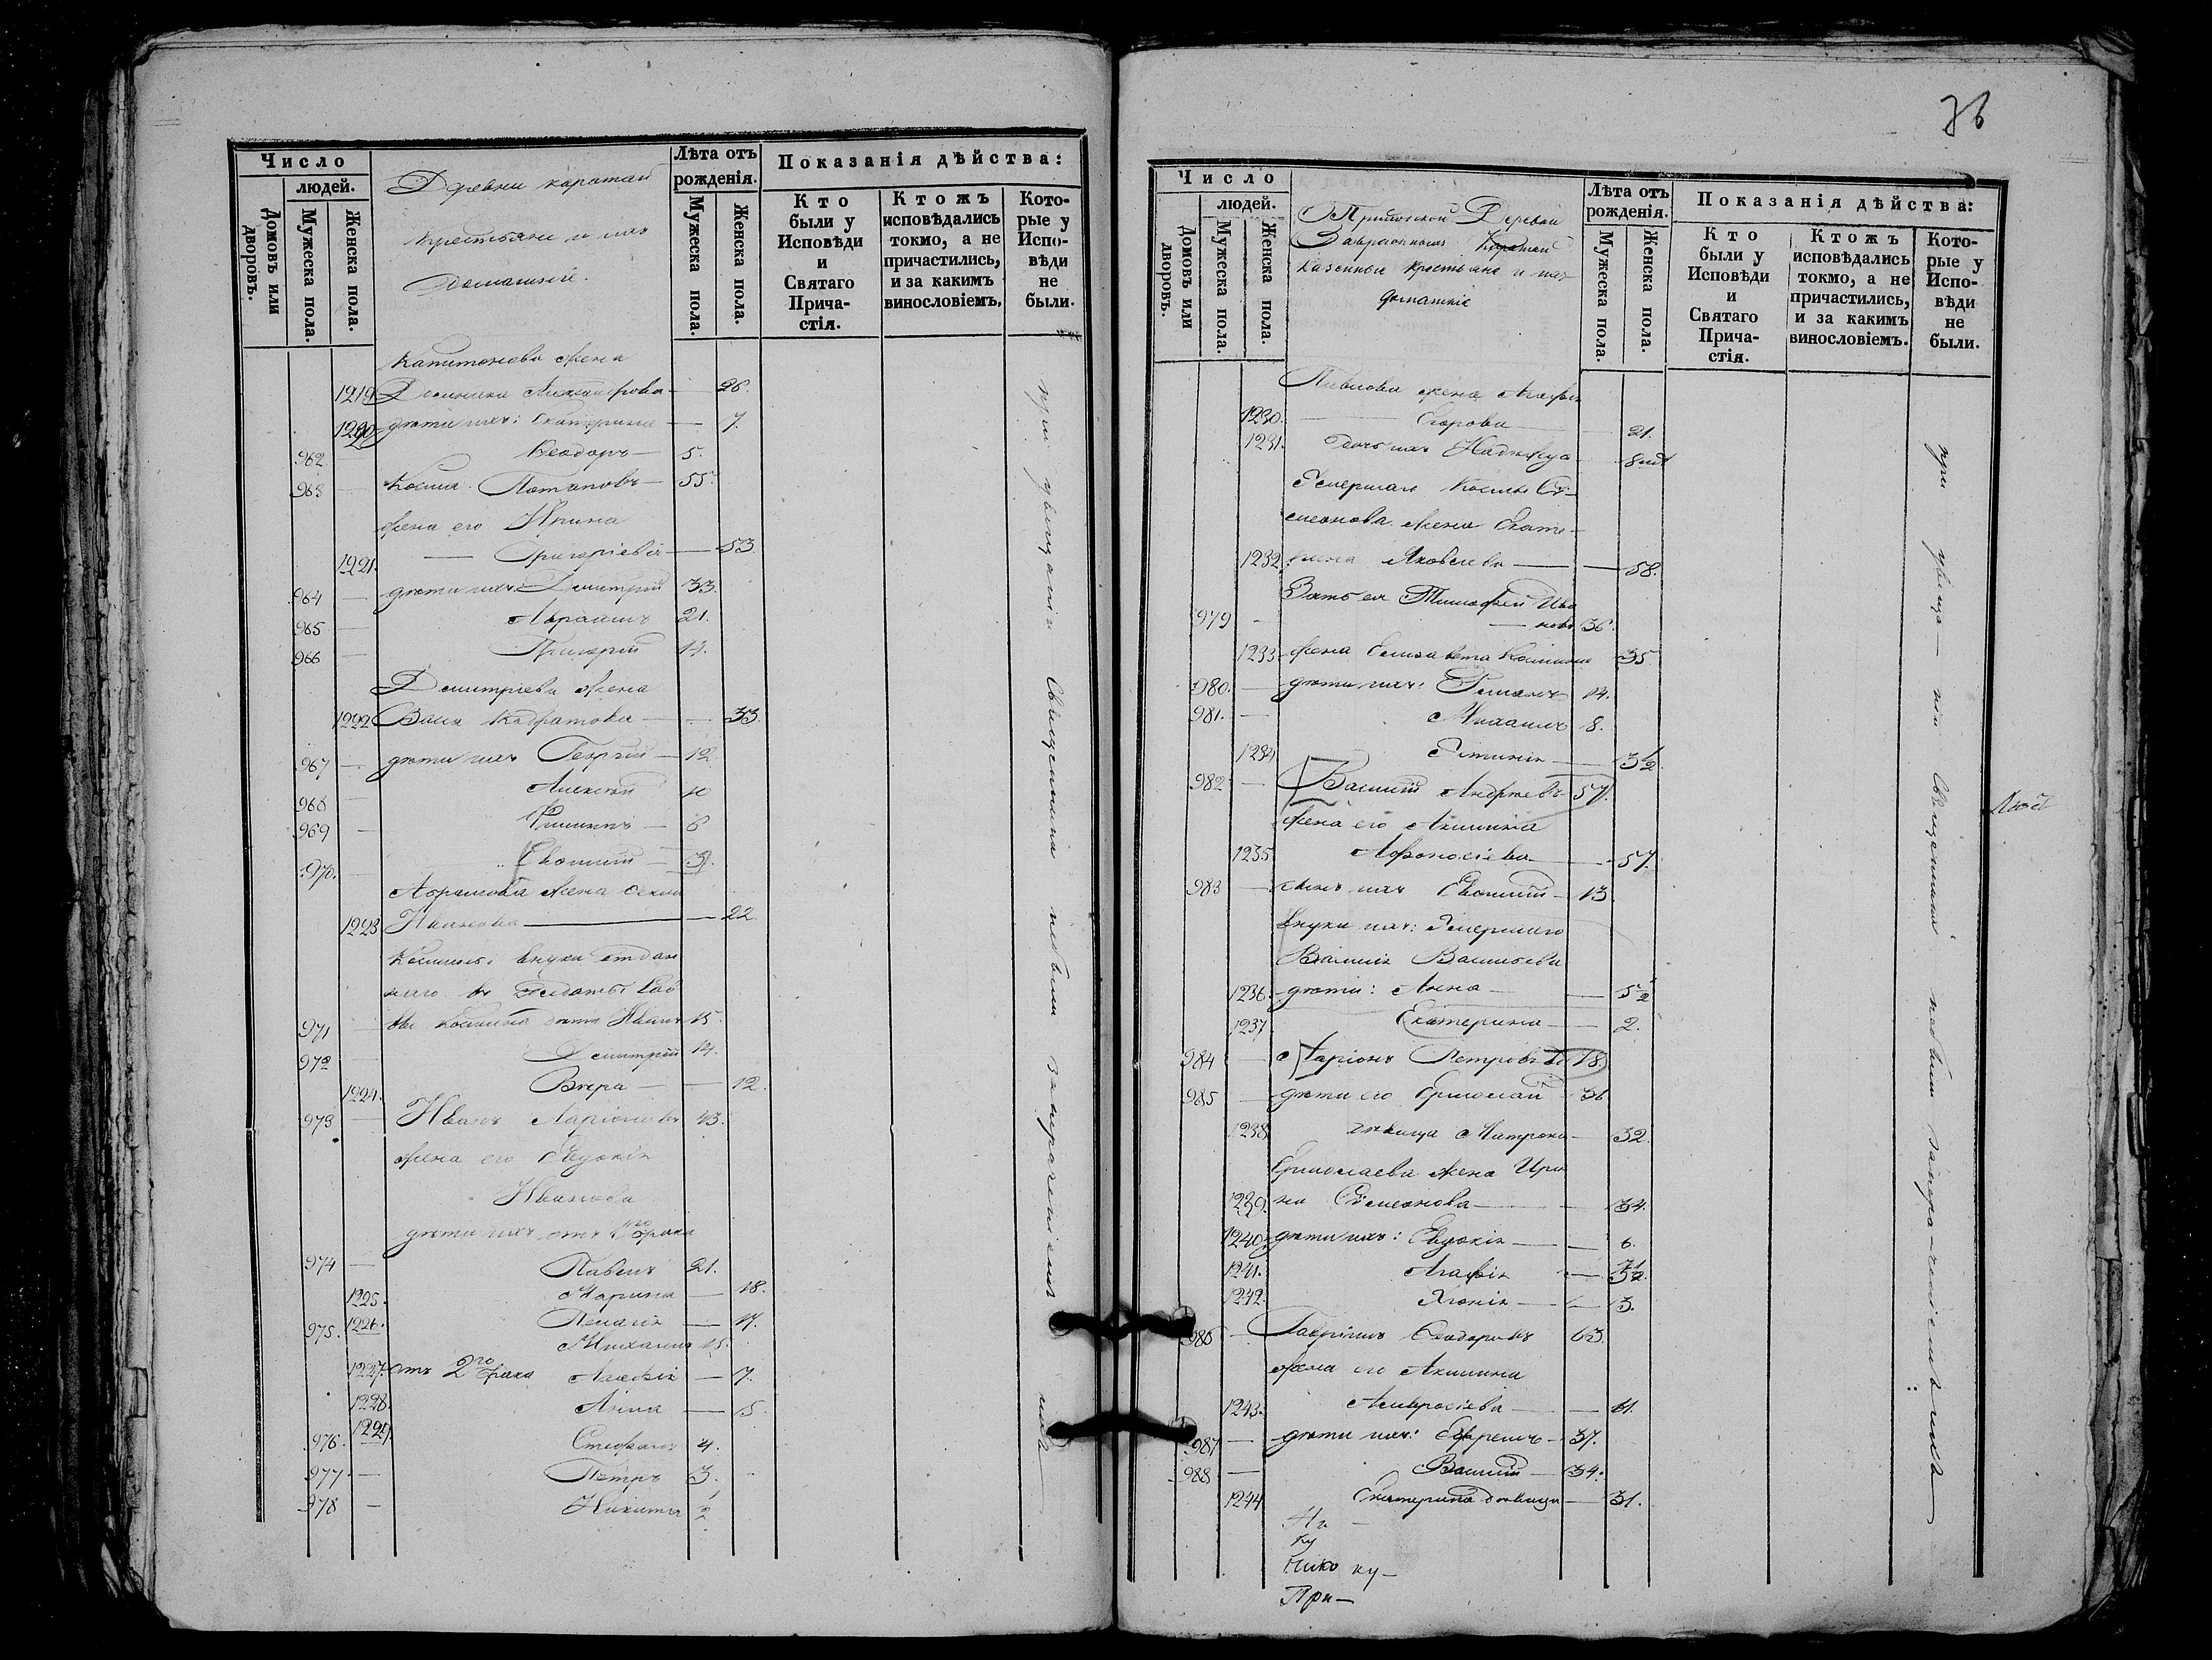 Число
людей.
Домовъ или дворовъ.
Мужеска пола.
Женска пола.
Деревни каратаи
крестьяне и ихъ
домашніе.
Лѣта отъ рожденія.
Мужеска пола.
Женска пола.
Показанія дѣйства:
Кто были у Исповѣди и Святаго Прича-стія.
Ктожъ исповѣдались токмо, а не причастились, и за какимъ винословіемъ.
Кото-рые у Испо-вѣди не были.
Капитонова жена
1219 Александрова — 26.
1220 дѣти ихъ: Екатерина — 7.
962 Ѳеодоръ — 5.
963 — Косма Потаповъ — 55.
жена его Ирина
1221. — Григоріева — 53
964 — дѣти ихъ: Димитрій 33.
965 — Абрамъ 21.
966 — Григорій 14.
Димитріева жена
1222 Васса — 33.
967 — дѣти ихъ Георгій — 12
968 — Алексѣй 10
969 — Филиппъ — 6
970. Евѳимій — 3.
Абрамова жена
1223 Иванова — 22
Космины внуки отдан
наго въ солдаты
971 дѣти Иванъ 15.
972 — Димитрій 14.
1224. Вѣра — 12.
973 — Иванъ Ларіоновъ 43.
жена его Евдокія
Иванова
дѣти ихъ отъ 1го брака
974 — Павелъ 21.
1225. Марина — 18.
1226. Пелагія — 17.
975. Михаилъ 15.
1227. отъ 2го брака Агафія — 7.
1228. Анна — 5.
976. 1229 Стефанъ 4.
977 — Петръ 3.
978 — Никита ½
при увѣщаніи Священника небыли за нераченіемъ ихъ
36
Число
людей.
Домовъ или дворовъ.
Мужеска пола.
Женска пола.
Деревни
Каратаи
казенные крестьяне и ихъ
домашніе
Лѣта отъ рожденія.
Мужеска пола.
Женска пола.
Показанія дѣйства:
Кто были у Исповѣди и Святаго Прича-стія.
Ктожъ исповѣдались токмо, а не причастились, и за какимъ винословіемъ.
Кото-рые у Испо-вѣди не были.
Павлова жена Агафія
1230. — Егорова — 21.
1231. Дочь ихъ Надежда —
Умершаго Космы Си-
меонова жена Екате-
1232. рина Яковлева — 58.
Зять ея Тимофей Ива
979 — новъ 36.
1233 жена Елизавета Космина 35
980. — дѣти ихъ: Романъ 14.
981. — Михаилъ 8.
1234 Устинія — 3½
982 — Василій Андреевъ 57.
жена его Акилина
1235. Афонасіева — 57.
983 — сынъ ихъ Евѳимій — 13
внуки ихъ: Умершаго
Василія Васильева
1236. дѣти: Анна — 5½
1237 Екатерина — 2.
984 — Ларіонъ Петровъ 78.
985 — дѣти его Ермолай 36
1238. дѣвица Матрона — 32.
Ермолаева жена Ири
1239. на Симеонова — 34.
1240. дѣти ихъ: Евдокія — 6.
1241. Агафія —
1242. — 3.
986 — Гавріилъ Ѳеодоровъ 63.
жена его Акилина
1243. Амвросіева — 61.
987 — дѣти ихъ: Ефремъ — 37.
988 — Василій — 34.
1244 Екатерина дѣвица — 31.
ку
Нико ку —
При —
при увѣща — ніи Священника небыли за нера-ченіемъ ихъ